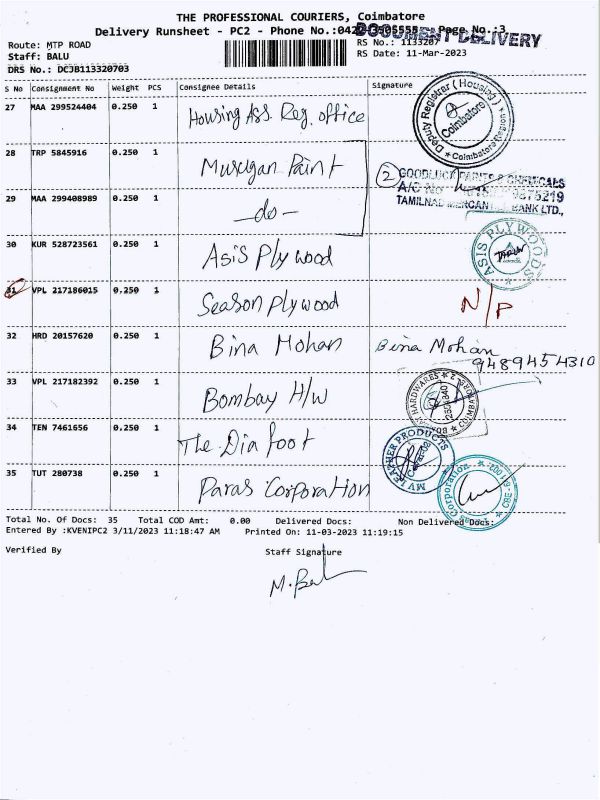 THE PROFESSIONAL COURIERS, Coimbatore
Delivery Runsheet - PC2 - Phone No.:0422 3505555 Page No.:3
DOCUMENT DELIVERY
Route: MTP ROAD RS No.: 1133207
Staff: BALU RS Date: 11-Mar-2023
DRS No.: DCJB113320703
S No Consignment No Weight PCS Consignee Details Signature
27 MAA 299524404 0.250 1 Housing Ass. Reg. office
Deputy Registrar (Housing) Coimbatore
28 TRP 5845916 0.250 1 Murugan Paint
2 GOODLUCK PAINTS & CHEMICALS
A/C No
TAMILNAD MERCANTILE BANK LTD.,
29 MAA 299408989 0.250 1 -do-
30 KUR 528723561 0.250 1 Asis Plywood
ASIS PLYWOODS
31 VPL 217186015 0.250 1 Season Plywood N/P
32 HRD 20157620 0.250 1 Bina Mohan Bina Mohan
9489454310
33 VPL 217182392 0.250 1 Bombay H/W
HARDWARES
34 TEN 7461656 0.250 1 The Dia foot
MV LEATHER PRODUCTS
35 TUT 280738 0.250 1 Paras Corporation
Paras Corporation CBE-
Total No. Of Docs: 35 Total COD Amt: 0.00 Delivered Docs: Non Delivered Docs:
Entered By :KVENIPC2 3/11/2023 11:18:47 AM Printed On: 11-03-2023 11:19:15
Verified By Staff Signature
M. Bal